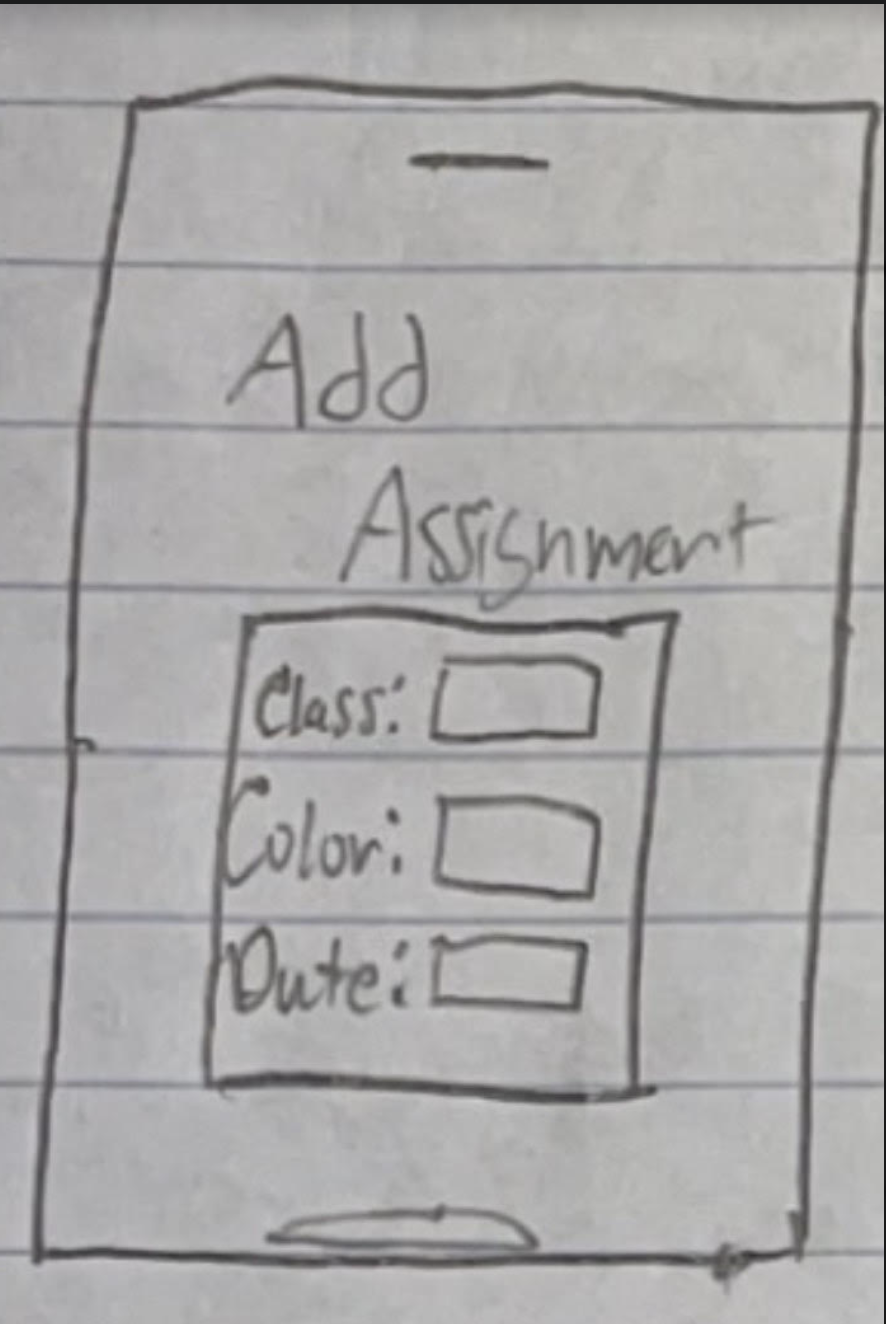 Add
Assignment
Class:
Color:
Date: